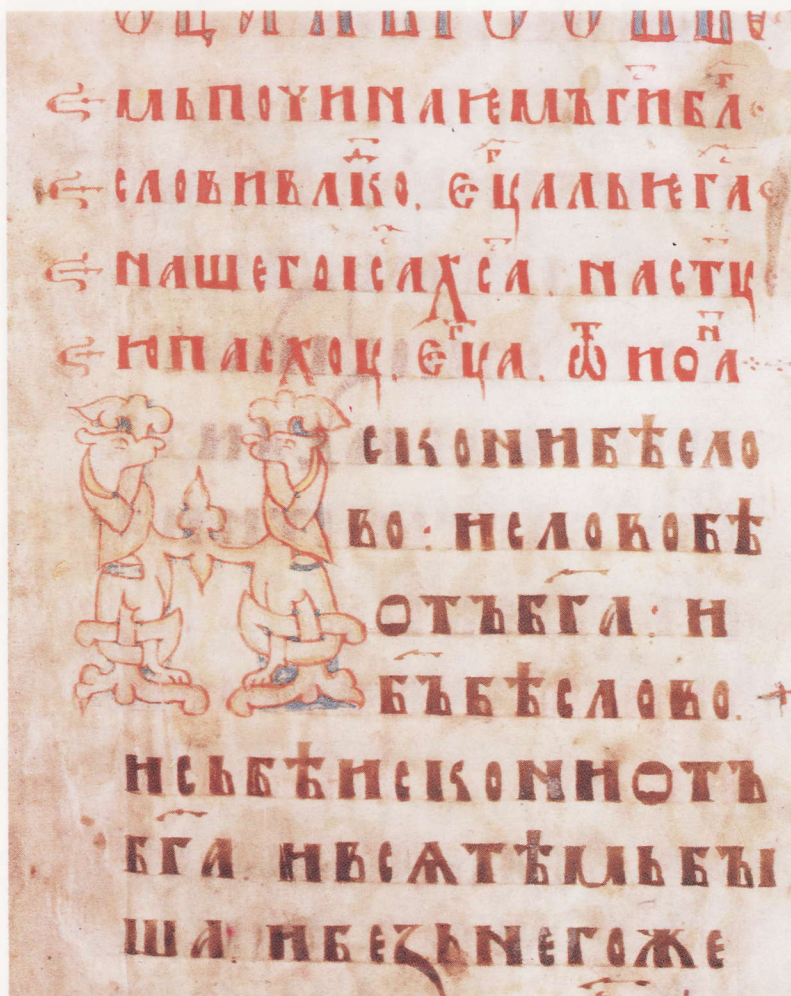 мьпоꙋинаѥмъг҃иб҃л
словивл҃ко. є҃цальѥг҃а
нашегоіс҃ах҃са. настц҃
юпасхоц. є҃ца. ѿ ио҃а
искони бѣсло
во : и слово бѣ
отъ б҃га : и
б҃ъ бѣ слово.
и сь бѣ искони отъ
б҃га. и вьсѧ тѣмь бы
ша. и безь него же